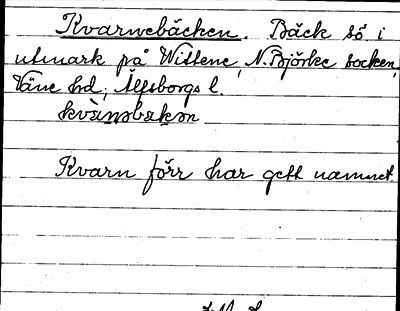 Kvarnebäcken. Bäck sö i
utmark på Wittene, N. Björke socken,
Väne hd, Älfsborgs l.
Kvarn förr har gett namnet.